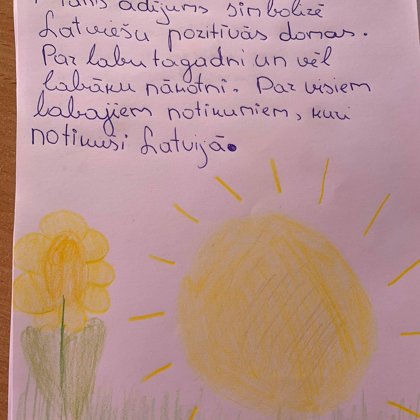 adījums simbolizē
Latviešu pozitīvās domas.
Par labu tagadni un vēl
labāku nākotni. Par visiem
labajiem notikumiem, kuri
notikuši Latvijā.